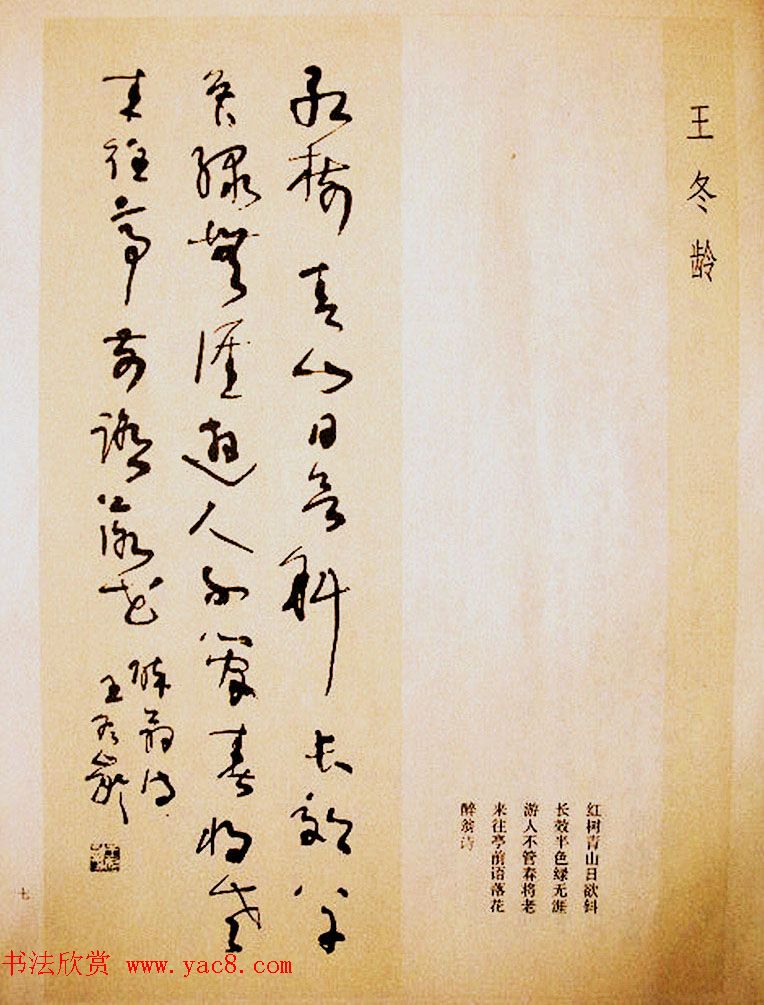 王冬龄
红树青山日欲斜
长效半色绿无涯
游人不管春将老
来往亭前语落花
醉翁诗
红树青山日欲斜长郊草
色绿無涯遊人不管春将老
来往亭前语落花
醉翁诗
王冬龄
七
书法欣赏 www.yac8.com